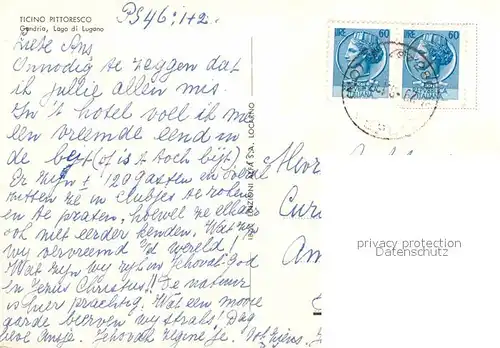 TICINO PITTORESCO
Gandria, Lago di Lugano
PS 46:1+2.
Lieve Ans
Onnodig te zeggen dat
ik jullie allen mis.
In 't hotel voel ik me
een vreemde eend in
de bijt (of is 't toch bijt)
Er zijn ± 120 gasten en overal
zitten ze in clubjes te roken
en te praten, hoewel ze elkaar
ook niet eerder kenden. Wat zijn
wij vervreemd v/d wereld!
Wat zijn wij rijk in Jehovah God
en Jezus Christus!! De natuur
is hier prachtig. Wat een mooie
aarde beerven wij straks! Dag
lieve Ansje. Jehovah zegene je.
LIRE 60
LIRE 60
LOCARNO
Mevr
Cur
Am
privacy protection
Datenschutz